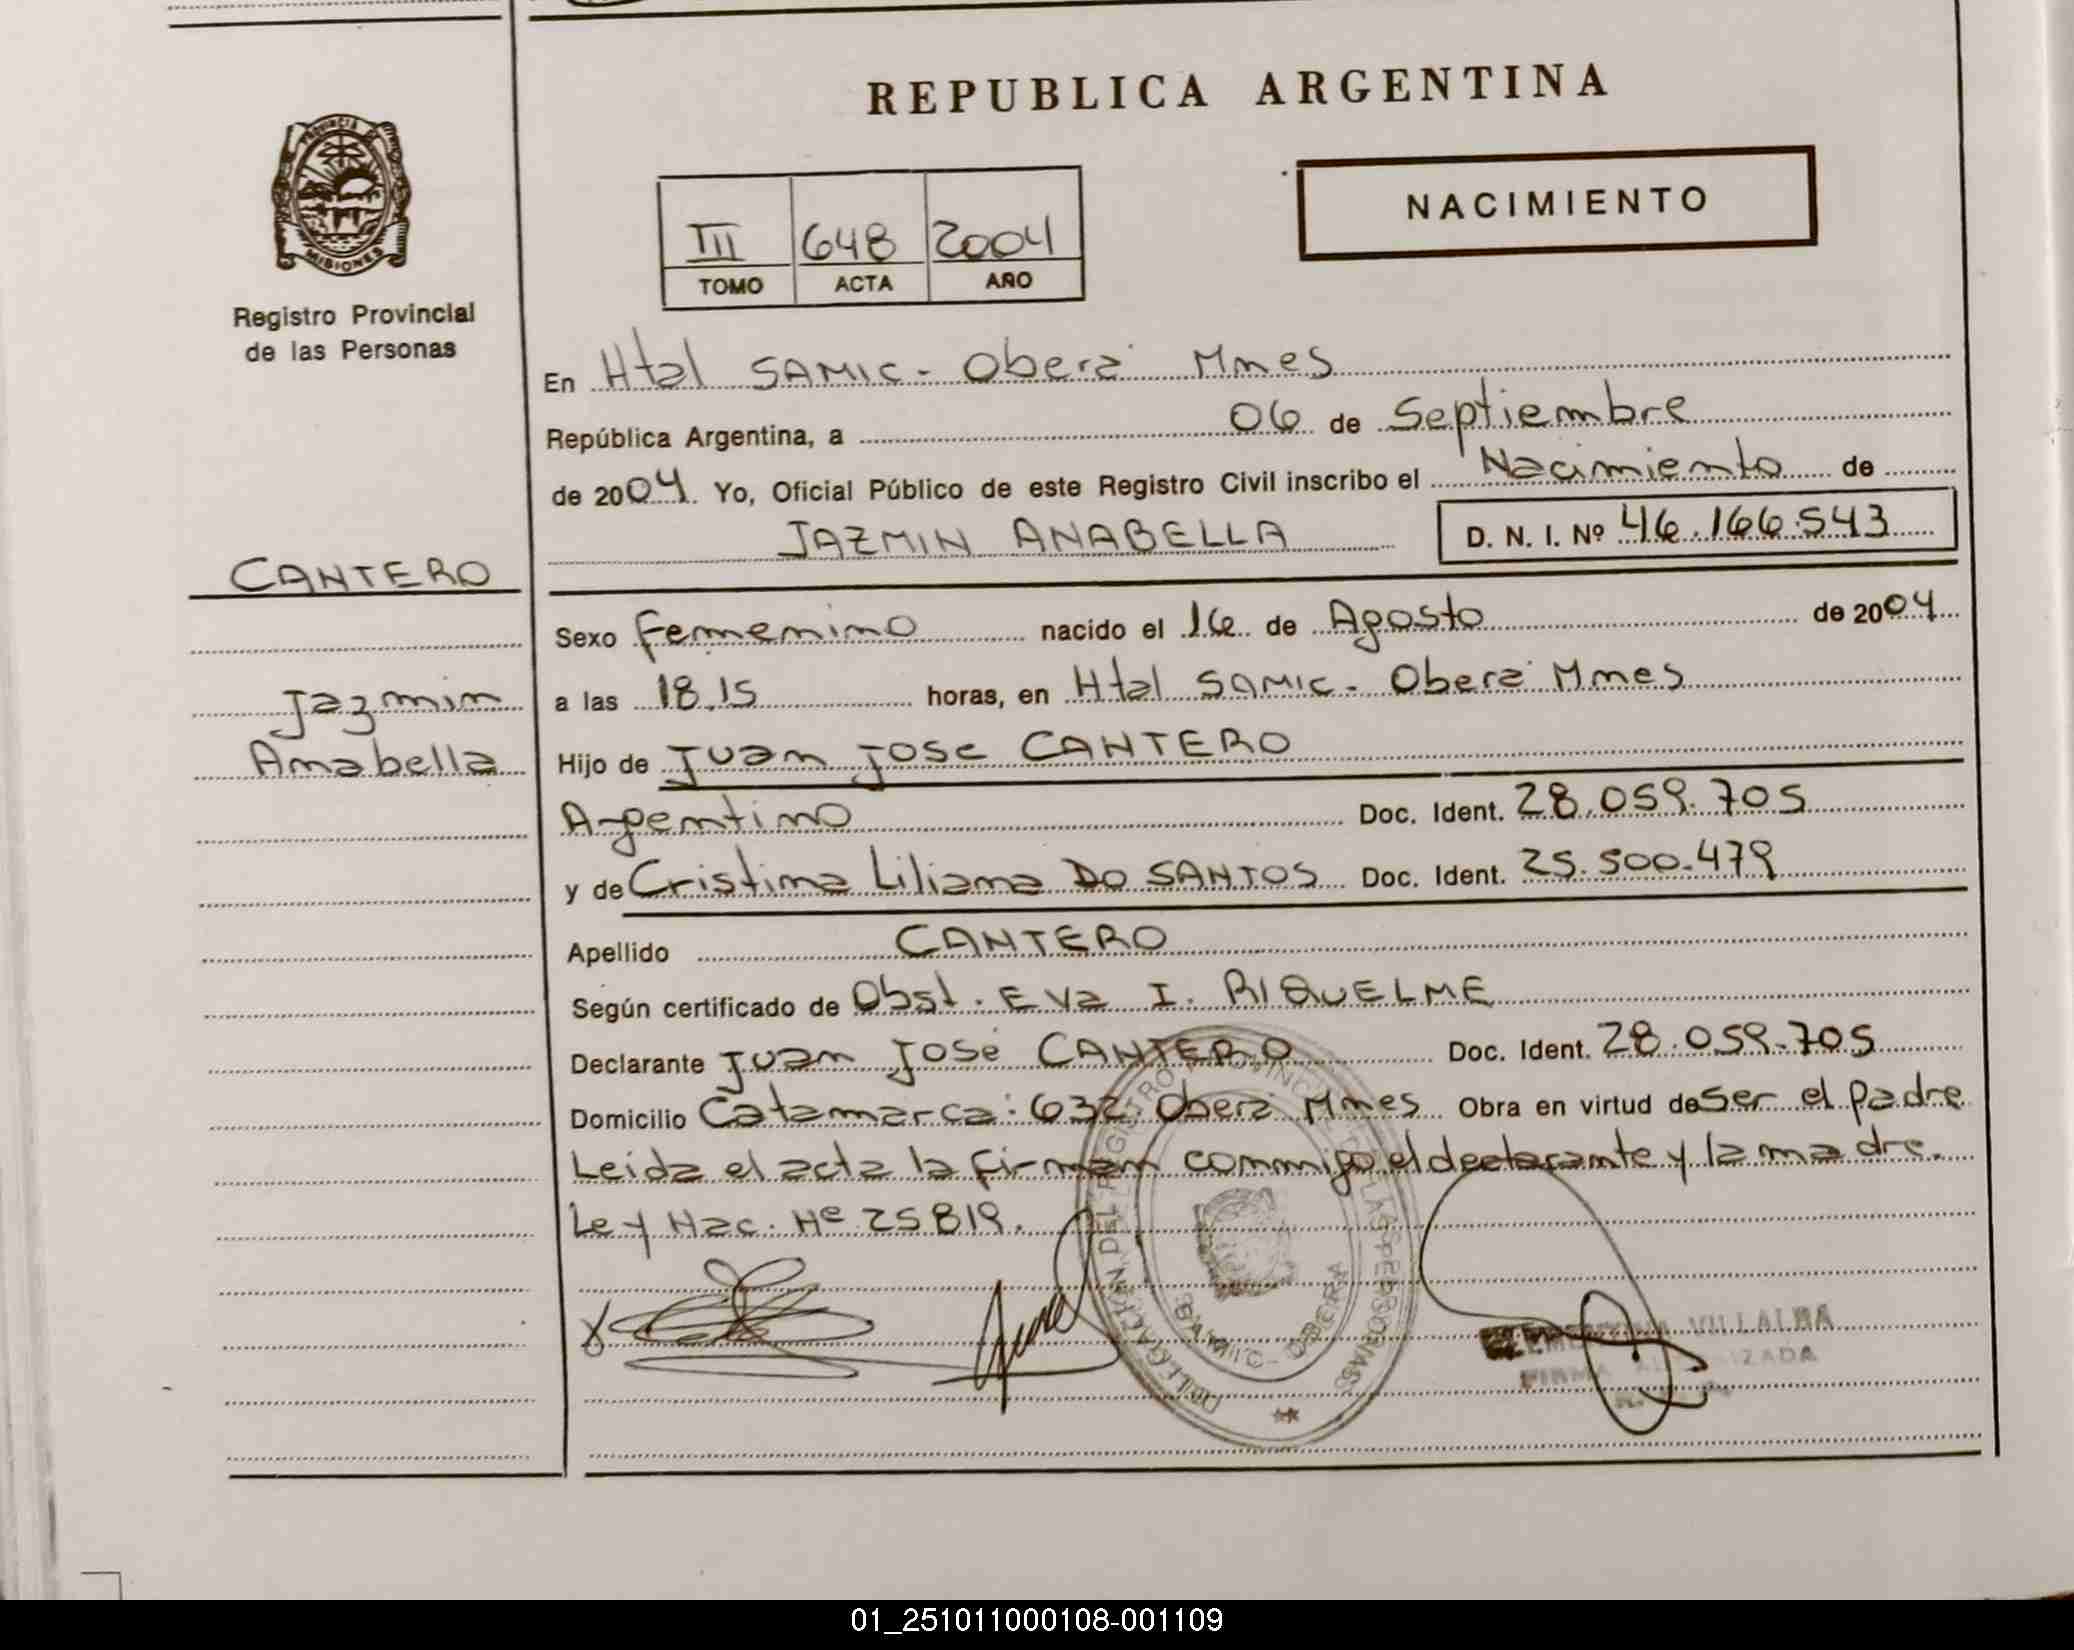 REPUBLICA ARGENTINA
PROVINCIA DE
MISIONES
Registro Provincial
de las Personas
NACIMIENTO
III 648 2004
TOMO ACTA AÑO
En Htal SAMIC. Oberá Mnes
República Argentina, a 06 de Septiembre
de 2004. Yo, Oficial Público de este Registro Civil inscribo el Nacimiento de
JAZMIN ANABELLA D. N. I. Nº 46.166.543
CANTERO
Jazmin
Anabella
Sexo Femenino nacido el 16 de Agosto de 2004
a las 18.15 horas, en Htal SAMIC. Oberá Mnes
Hijo de Juan Jose CANTERO
Argentino Doc. Ident. 28.059.705
y de Cristina Liliana DO SANTOS Doc. Ident. 25.500.479
Apellido CANTERO
Según certificado de Obst. Eva I. RIQUELME
Declarante Juan José CANTERO Doc. Ident. 28.059.705
Domicilio Catamarca: 632. Oberá Mnes Obra en virtud de Ser el padre
Leida el acta la firman conmigo el declarante y la madre.
Ley Nac. Nº 25.819.
DELEGACION DEL REGISTRO PROVINCIAL DE LAS PERSONAS
OBERA
VILLALBA
FIRMA
01_251011000108-001109